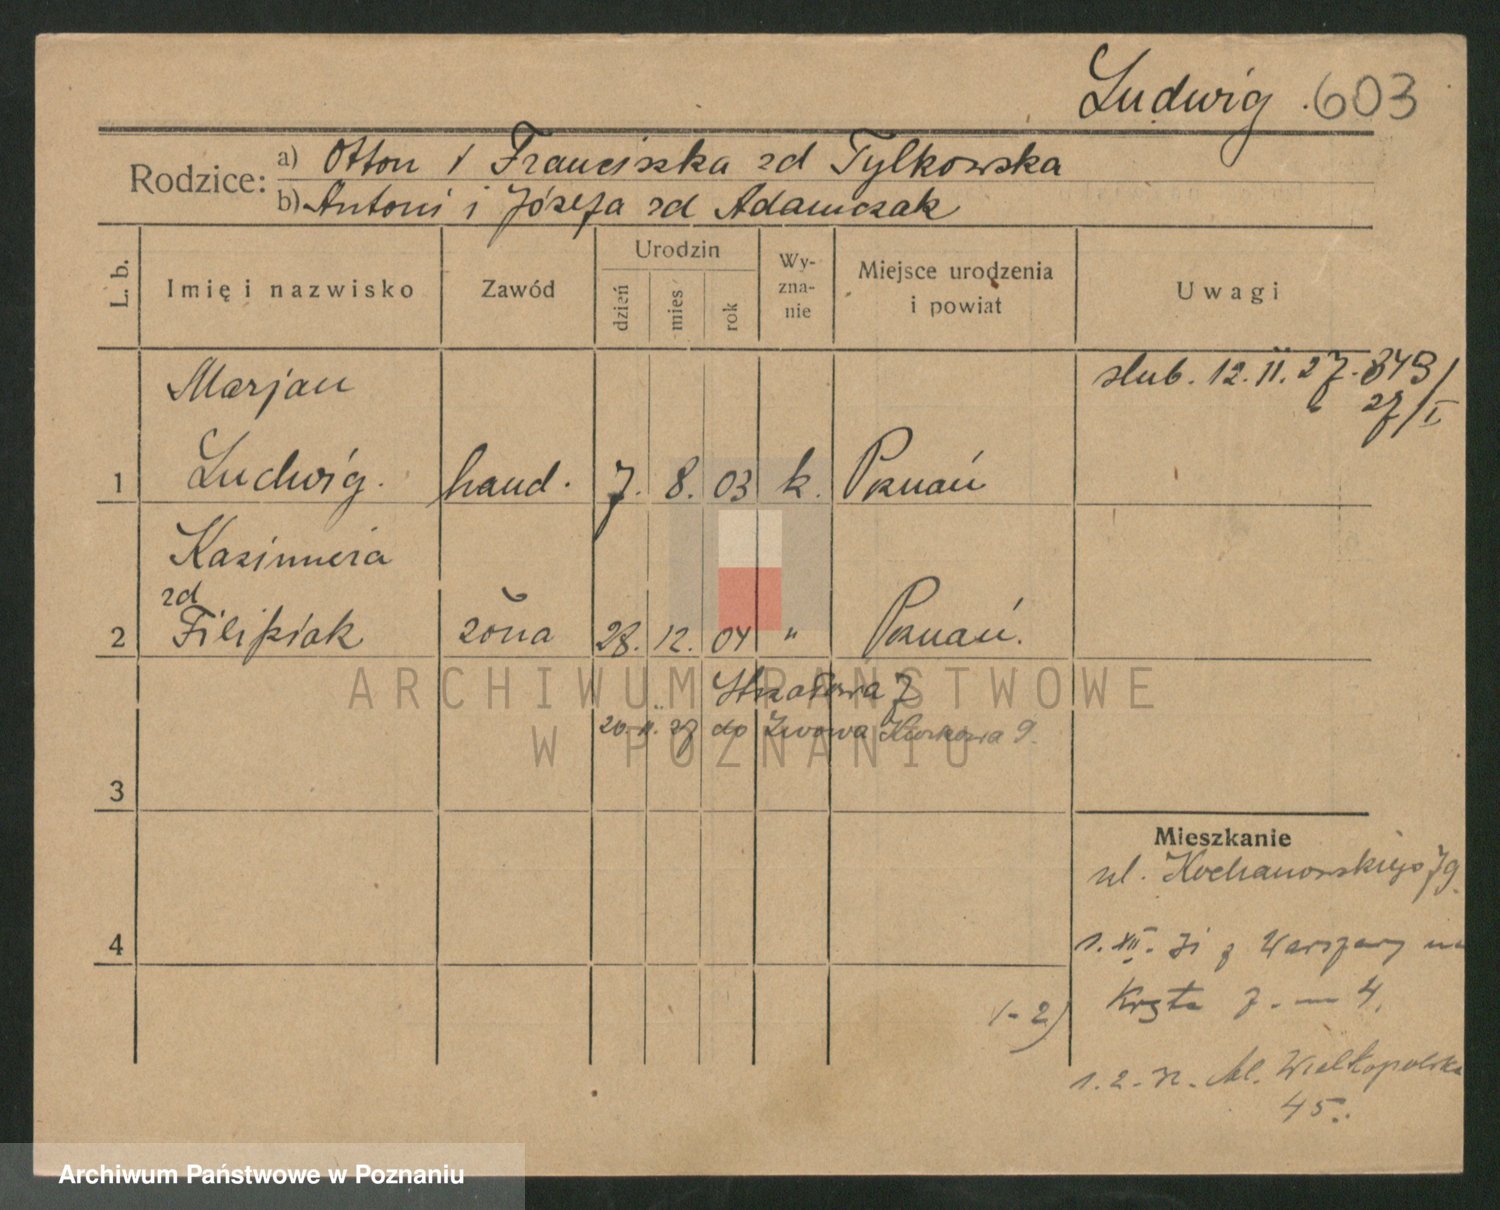 Ludwig 603
Rodzice: a) Otton i Franciszka zd Tylkowska
b) Antoni i Józefa zd Adamczak
L. b. Imię i nazwisko Zawód Urodzin dzień mies rok Wy-zna-nie Miejsce urodzenia i powiat Uwagi
Marjan ślub. 12. II. 27. 849/
27/I
1 Ludwig. hand. 7. 8. 03 k. Poznań
Kazimiera
zd
2 Filipiak żona 28. 12. 04 " Poznań.
Strzałowa 7
20. II. 27 do Lwowa Kurkowa 9.
ARCHIWUM PAŃSTWOWE
W POZNANIU
3
Mieszkanie
ul. Kochanowskiego 79.
4
1. XII. 31 z Warszawy na
7. m 4.
1-2)
1. 2. 32. Al. Wielkopolska
45.
Archiwum Państwowe w Poznaniu